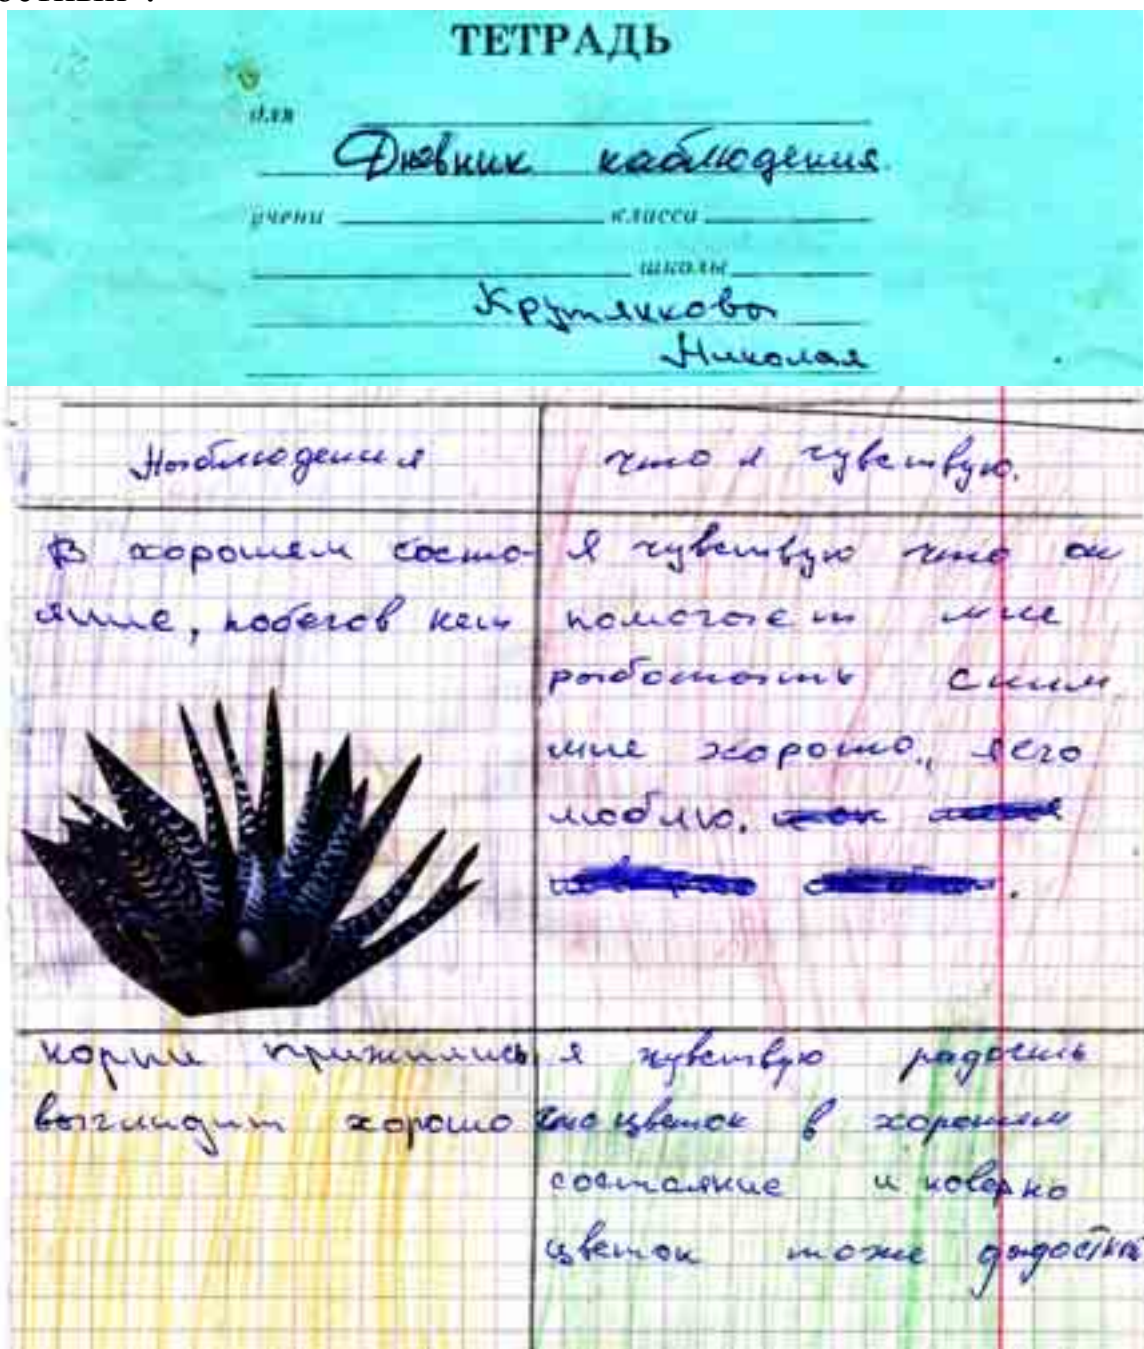 ТЕТРАДЬ
для
Дневник наблюдения
учени класса
школы
Николая
Наблюдения
что я чувствую.
В хорошем состо-
яние, побегов нет
я чувствую что он
помогает мне
работать с ним
мне хорошо, я его
люблю.
корни прижились
выглидит хорошо
я чувствую радость
что цветок в хорошем
состояние и наверно
цветок тоже